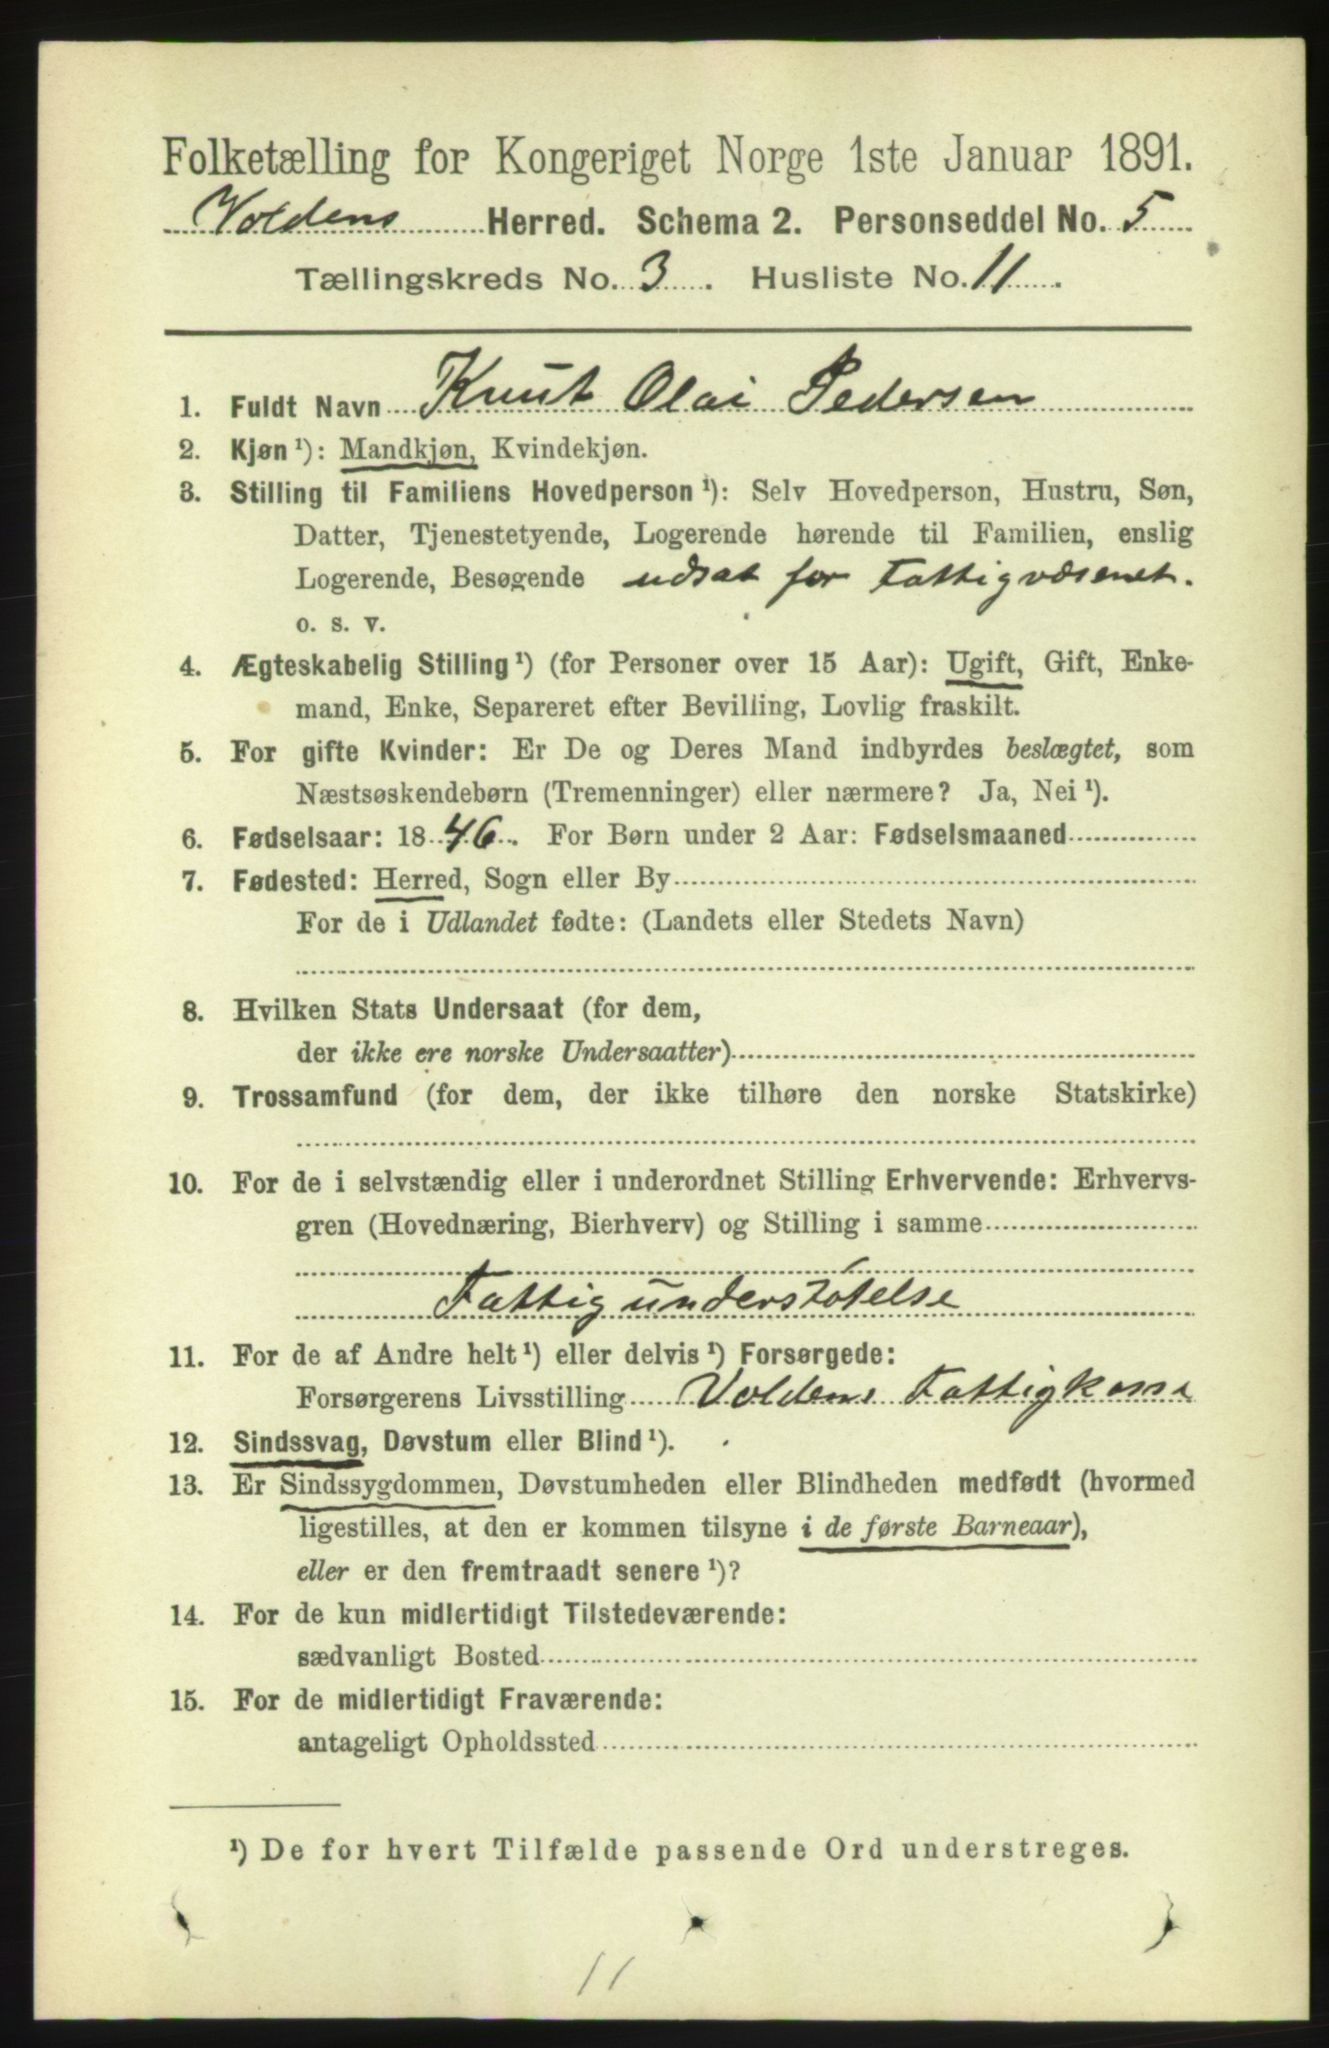 Folketælling for Kongeriget Norge 1ste Januar 1891.
Voldens Herred. Schema 2. Personseddel No. 5
Tællingskreds No. 3. Husliste No. 11.
1. Fuldt Navn Knut Olai Pedersen
2. Kjøn ¹): Mandkjøn, Kvindekjøn.
3. Stilling til Familiens Hovedperson ¹): Selv Hovedperson, Hustru, Søn,
Datter, Tjenestetyende, Logerende hørende til Familien, enslig
Logerende, Besøgende udsat for Fattigvæsenet.
o. s. v.
4. Ægteskabelig Stilling ¹) (for Personer over 15 Aar): Ugift, Gift, Enke-
mand, Enke, Separeret efter Bevilling, Lovlig fraskilt.
5. For gifte Kvinder: Er De og Deres Mand indbyrdes beslægtet, som
Næstsøskendebørn (Tremenninger) eller nærmere? Ja, Nei ¹).
6. Fødselsaar: 1846. For Børn under 2 Aar: Fødselsmaaned
7. Fødested: Herred, Sogn eller By
For de i Udlandet fødte: (Landets eller Stedets Navn)
8. Hvilken Stats Undersaat (for dem,
der ikke ere norske Undersaatter)
9. Trossamfund (for dem, der ikke tilhøre den norske Statskirke)
10. For de i selvstændig eller i underordnet Stilling Erhvervende: Erhvervs-
gren (Hovednæring, Bierhverv) og Stilling i samme
Fattigunderstøtelse
11. For de af Andre helt ¹) eller delvis ¹) Forsørgede:
Forsørgerens Livsstilling Voldens Fattigkasse
12. Sindssvag, Døvstum eller Blind ¹).
13. Er Sindssygdommen, Døvstumheden eller Blindheden medfødt (hvormed
ligestilles, at den er kommen tilsyne i de første Barneaar),
eller er den fremtraadt senere ¹)?
14. For de kun midlertidigt Tilstedeværende:
sædvanligt Bosted
15. For de midlertidigt Fraværende:
antageligt Opholdssted
¹) De for hvert Tilfælde passende Ord understreges.
11